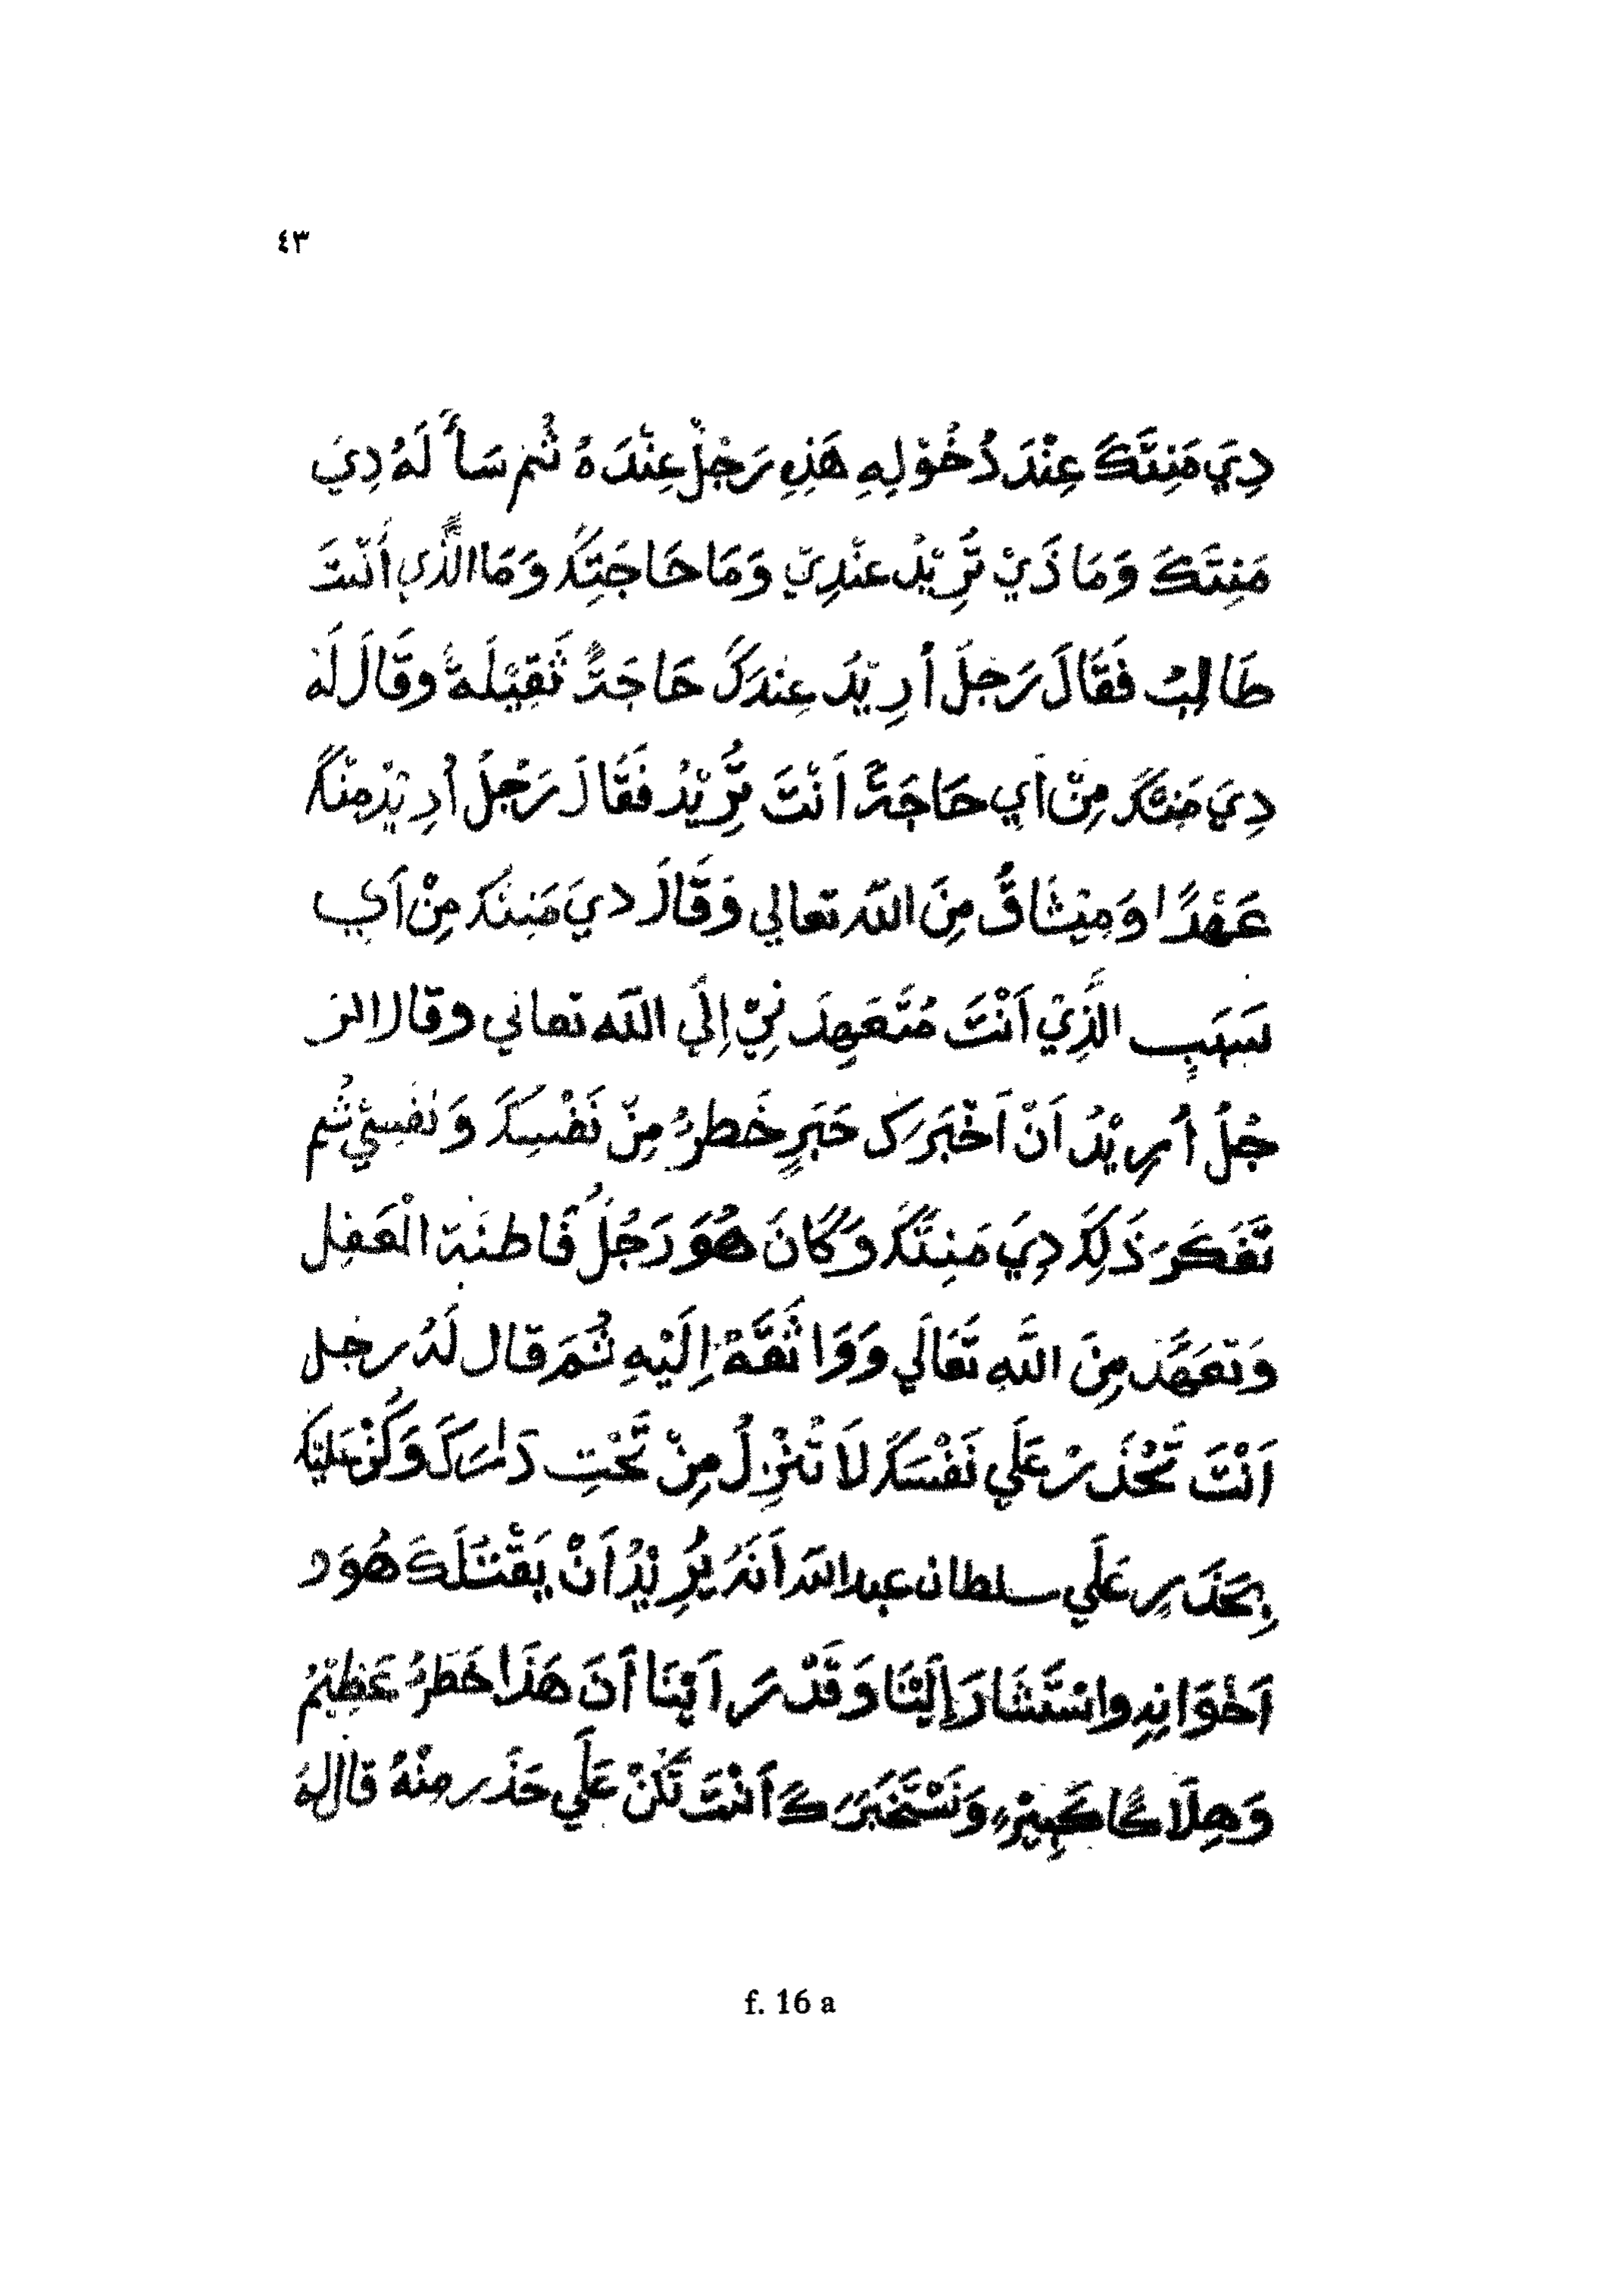 ٤٣
دِيَ مَنِتَّكَ عِنْدَ دُخُوْلِهِ هَذِهِ رَجُلٌ عِنْدَهُ ثُم سَأَلَهُ دِيَ
مَنِتَّكَ وَمَا ذَيْ تُرِيْدُ عِنْدِيْ وَمَا حَاجَتِكَ وَمَا الَّذِي أَنْتَ
طَالِبُ فَقَالَ رَجُلَ أُرِيْدُ عِنْدَكَ حَاجَةً ثَقِيْلَةً وقَالَ لَهُ
دِيَ مَنِتَّكَ مِنْ اَي حَاجَةً اَنْتَ تُرِيْدُ فَقَالَ رَجُلُ اُرِيْدُ مِنْكَ
عَهْدًا وَمِيْثَاقُ مِنَ اللّه تعالي وَقَالَ دِيَ مَنِتَكَ مِنْ اَي
سَبَبٍ الَّذِيْ اَنْتَ مُتَعَهِدَ نِيْ اِلَي اللّه تعالي وقال الر
جُلُ اُرِيْدُ اَنْ اَخْبَرَكَ خَبَرٍ خَطرُ مِنْ نَفْسِكَ وَنفسِيْ ثُم
تَفَكَرَ ذَلِكَ دِيَ مَنِتَّكَ وَكَانَ هُوَ رَجُلُ فَاطنَة الْعَقِل
وَتعَهَّدَ مِنَ اللَّهِ تَعَالَي وَوَاثَقَهُ اِلَيْهِ ثُمَ قال لَهُ رجل
اَنْتَ تَحْذَرْ عَلَي نَفْسَكَ لَا تَنْزِلُ مِنْ تَحْتِ دَارَكَ وَكُنْ عَليْكَ
بِحَذَرٍ عَلَي سلطان عبدالله اَنَهُ يُرِيْدُ اَنْ يَقْتُلَكَ هُوَ و
اَخْوَانِهِ واسْتَشَارَ اِلَيْنَا وَقَدْ رَاَيْنَا اَنَ هَذَا خَطرُ عَظِيْمُ
وَهِلَاكًا كَبِيْرٍ وَنَسْتَخْبَرَكَ اَنْتَ تَكُنْ عَلَي حَذَر مِنْهُ قال لهُ
f. 16 a